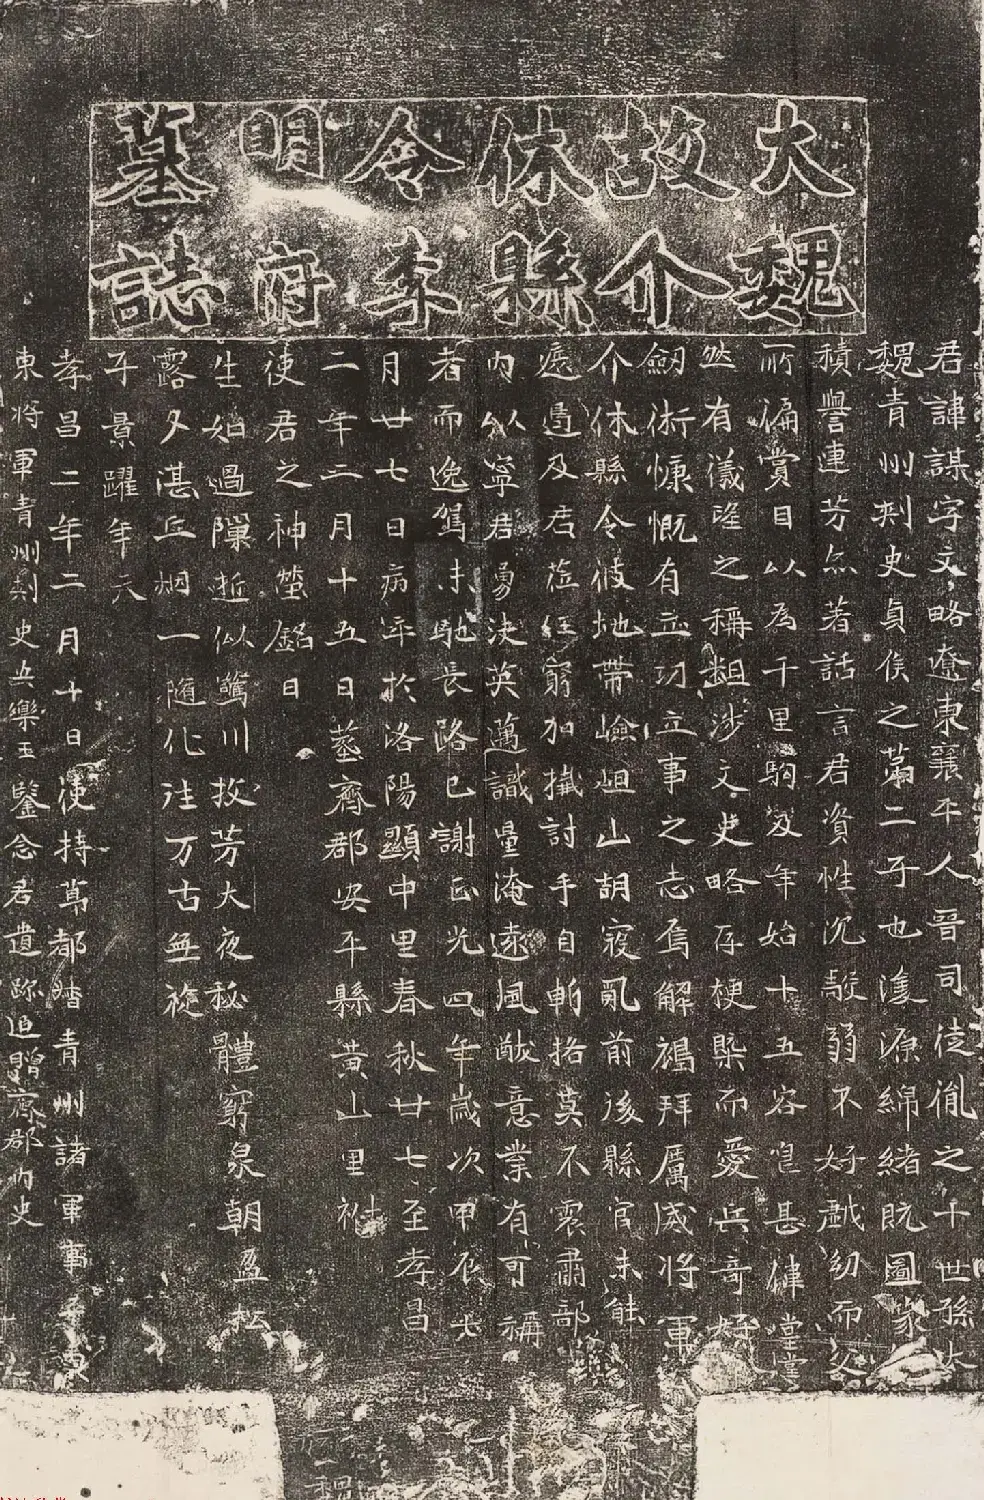 大魏
故介
休縣
令李
明府
墓誌
君諱謀字文略遼東襄平人晉司徒胤之十世孫大
魏青州刾史貞侯之第二子也濬源綿緒既圖家
積譽連芳亦著話言君資性沉毅弱不好戱幼而父
所偏賞目以為千里駒及年始十五容皃甚偉堂堂
然有儀望之稱麁涉文史略存梗槩而愛兵奇好
劒術慷慨有立功立事之志焉解褐拜厲威將軍
介休縣令彼地帶嶮岨山胡寇亂前後縣官未能
遮遏及君莅任窮加擒討手自斬挌莫不震肅部
內以寧君勇決英邁識量淹遠風猷意業有可稱
者而逸駕未馳長路已謝正光四年歲次甲辰七
月廿七日病卒於洛陽顯中里春秋廿七至孝昌
二年二月十五日塟齊郡安平縣黃山里祔
使君之神塋銘曰
生如過隟逝似驚川攸芳大夜秘體窮泉朝盈松
露夕湛丘烟一隨化往万古無旋
子景躍年六
孝昌二年二月十日使持莭都督青州諸軍事安東
東將軍青州刾史安樂王鑒念君遺跡追贈齊郡內史